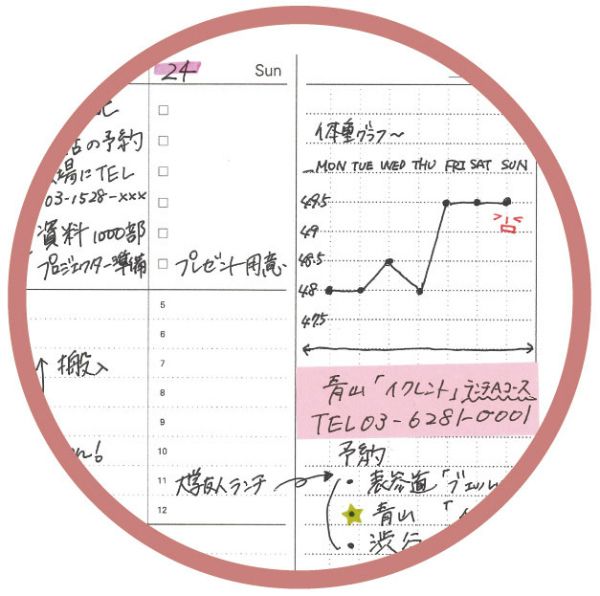 24 Sun
の予約
場にTEL
03-1528-xxx
資料1000部
プロジェクター準備
プレゼント用意
5
6
7
8
9
10
11
12
搬入
大学友人ランチ
体重グラフ〜
MON TUE WED THU FRI SAT SUN
49.5
49
48.5
48
47.5
青山「イクレント」ランチAコース
TEL 03-6281-0001
予約
・表参道「ジェル
青山「
・渋谷